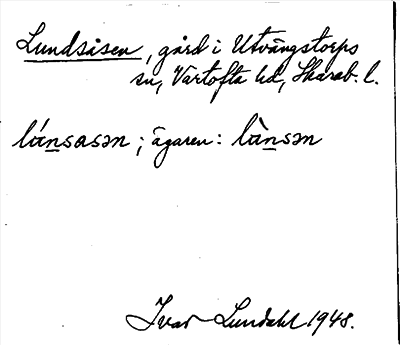 Lundsåsen, gård i Utvängstorps
sn, Vartofta hd, Skarab. l.
lánsasən; ägaren: lànsən
Ivar Lundahl 1948.